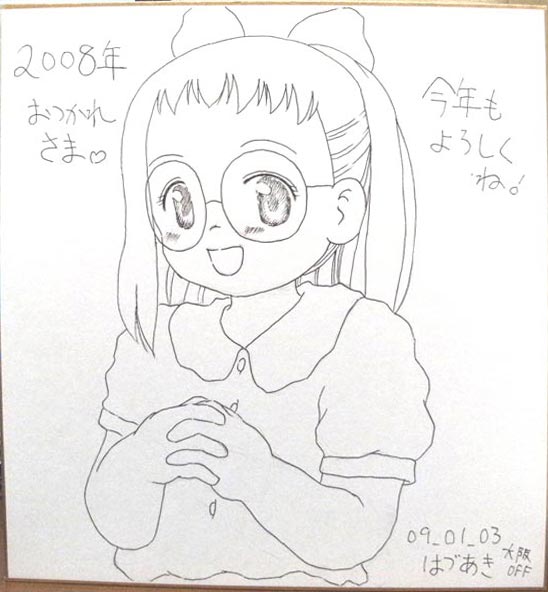 2008年
おつかれ
さま♡
今年も
よろしく
ね。
09_01_03
はづあき
大阪
OFF